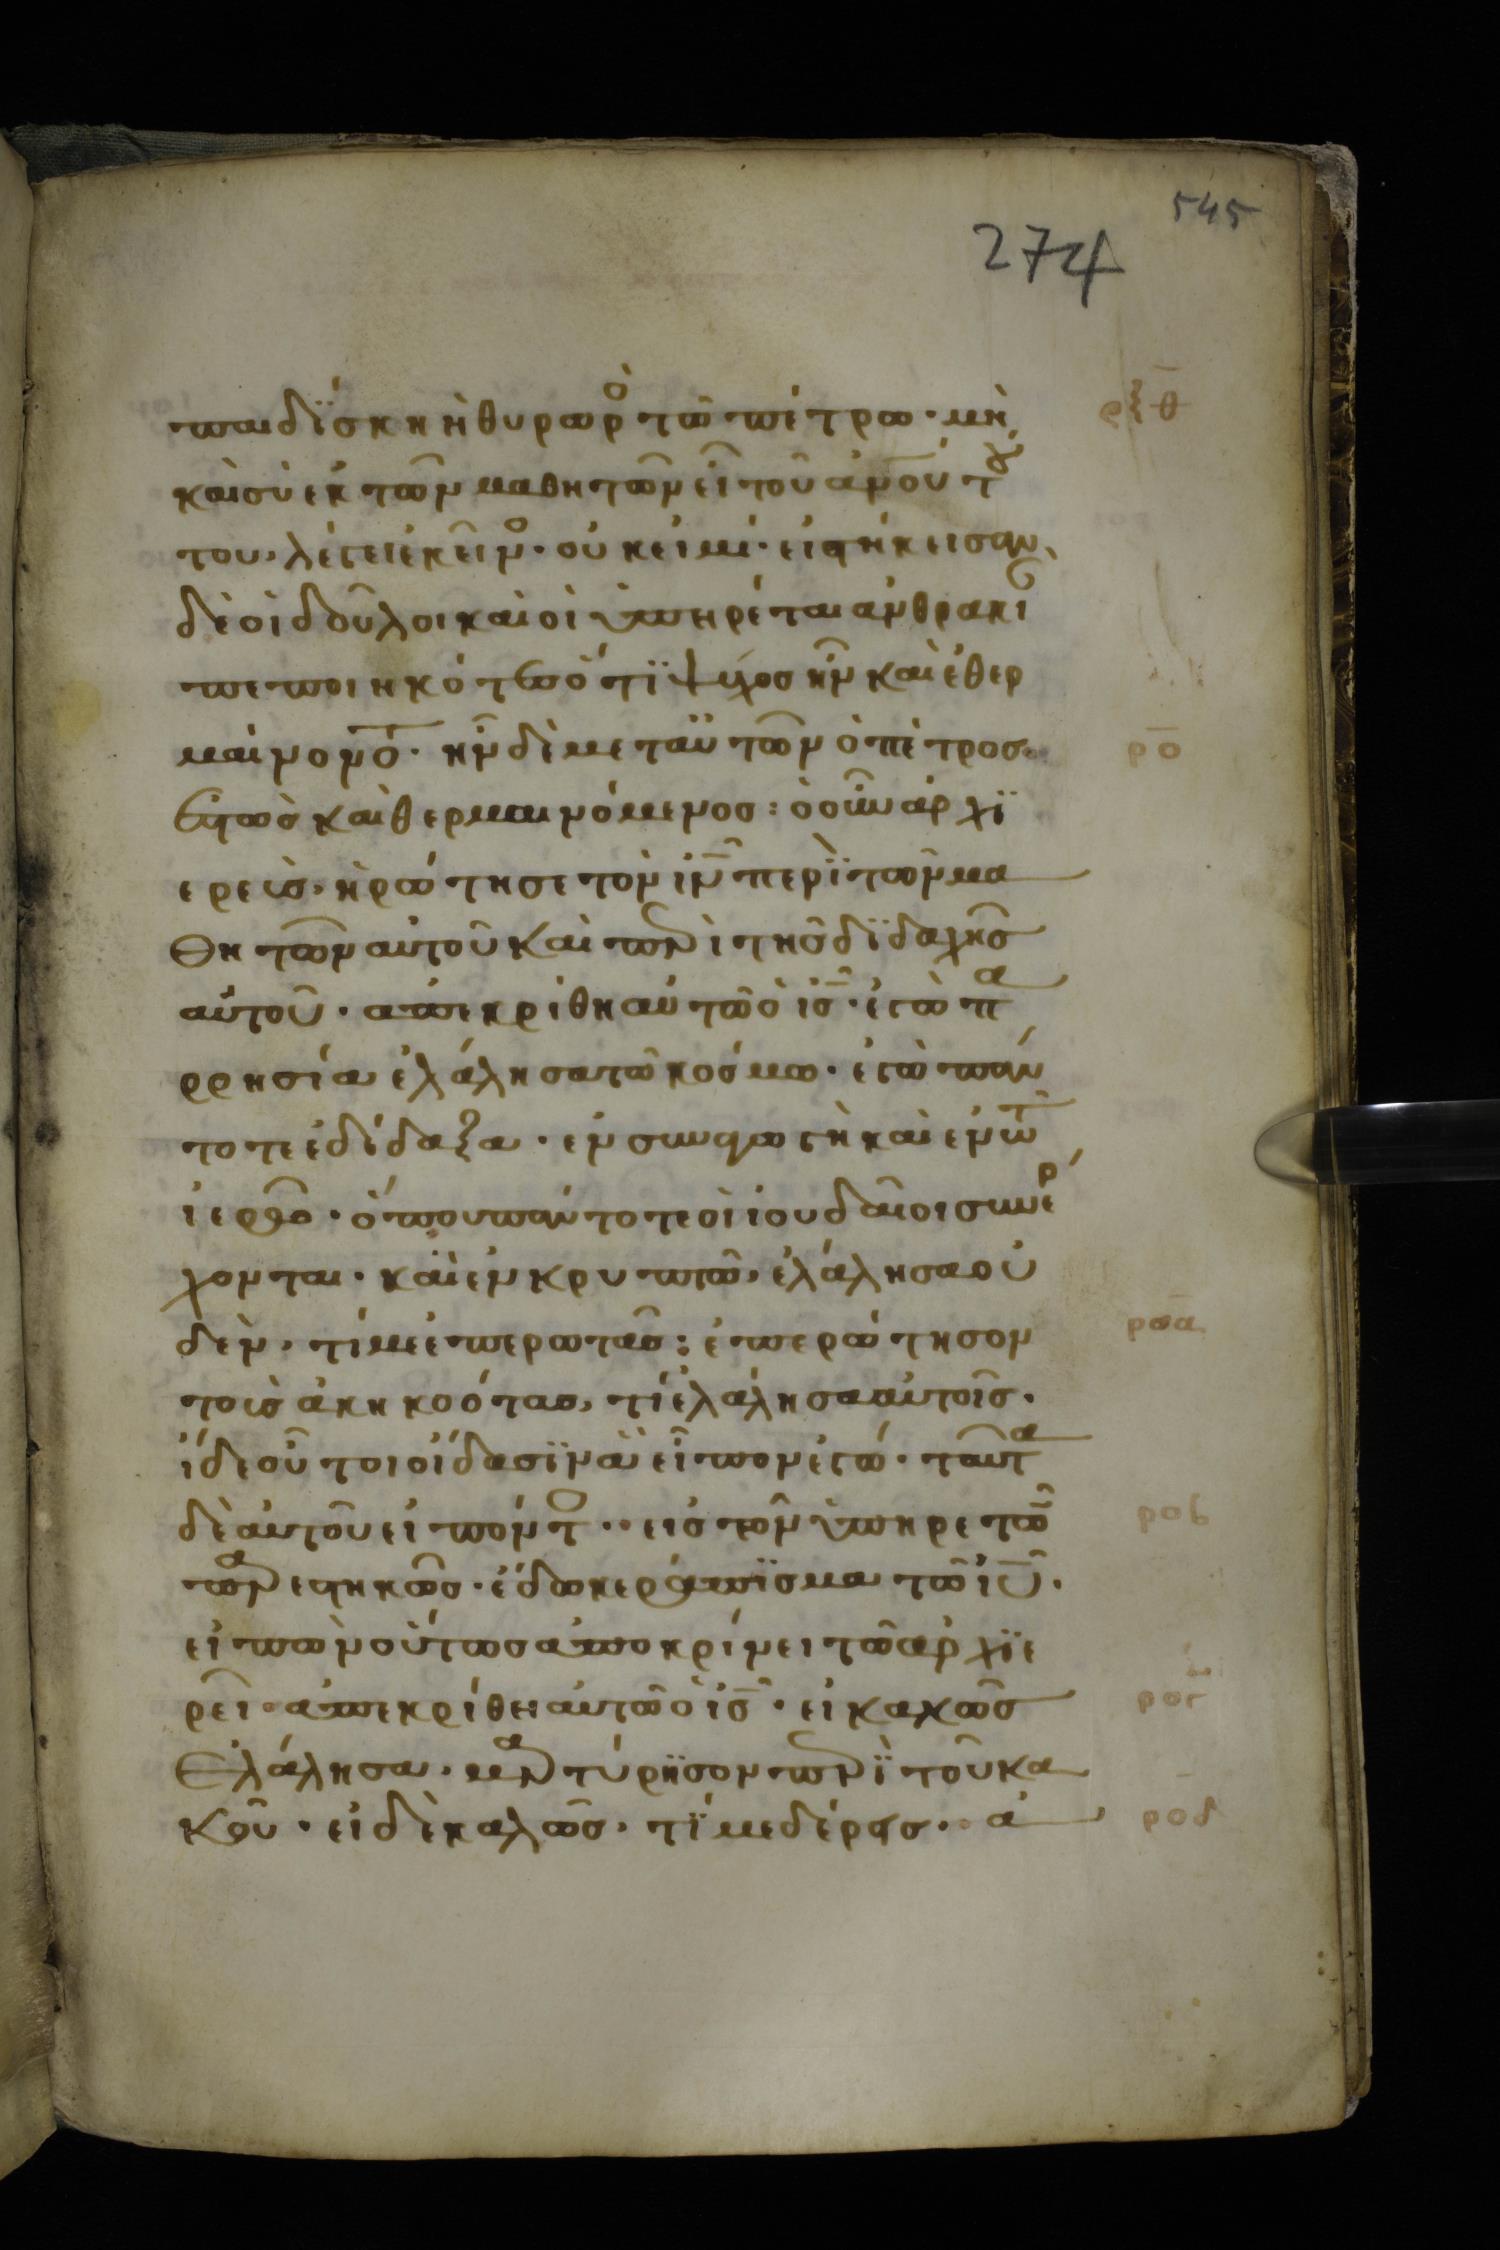 545
274
παιδΐσκη ἡ θυρωρὸ τῶ πέτρω · μὴ ρξθ
καὶ σὺ ἐκ τῶν μαθητῶν εἶ τοῦ ἀν̅ου τού
του, λέγει ἐκεῖνο · οὐκ εἰμί · εἱστήκεισαν
δὲ οἱ δοῦλοι καὶ οἱ ὑπηρέται ἀνθρακι
πεποιηκότες ὅτϊ ψύχοσ ἦν καὶ ἐθερ
μαίνοντο · ἦν δὲ μεταὐτῶν ὁ πέτροσ ρο
ἑστὼσ καὶ θερμαινόμενοσ : ὁ οὖν ἀρχϊ
ερεὺσ, ἠρώτησε τὸν ιν̅ περὶ τῶν μα
θητῶν αὐτοῦ καὶ περὶ τῆσ διδαχῆσ
αὐτοῦ · ἀπεκρίθη αὐτῶ ὁ ισ̅ · ἐγὼ πα
ρρησία ἐλάλησα τῶ κόσμω · ἐγὼ πάν
τοτε ἐδίδαξα · ἐν συναγωγῆ καὶ ἐν τῶ
ἱερῶ · ὅπου πάντοτε οἱ ἰουδαῖοι συνέρ
χονται · καὶ ἐν κρυπτῶ, ἐλάλησα οὐ
δέν, τί με ἐπερωτᾶσ : ἐπερώτησον ροα
τοὺσ ἀκηκοότασ, τί ἐλάλησα αὐτοῖσ ·
ἴδε οὗτοι οἴδασϊν ἃ εἶπον ἐγώ · ταῦτα
δὲ αὐτοῦ εἰπόντο · εἷσ τῶν ὑπηρετῶν ροβ
παρεστηκὼσ · ἔδωκε ράπϊσμα τῶ ιυ̅ ·
εἰπὼν οὕτωσ ἀποκρίνει τῶ ἀρχϊε
ρεῖ · ἀπεκρίθει αὐτῶ ὁ ισ̅ · εἰ κακῶσ ρογ
ἐλάλησα, μαρτύρησον περϊ τοῦ κα
κοῦ · εἰ δὲ καλῶσ, τί με δέρεισ · ἀ ροδ